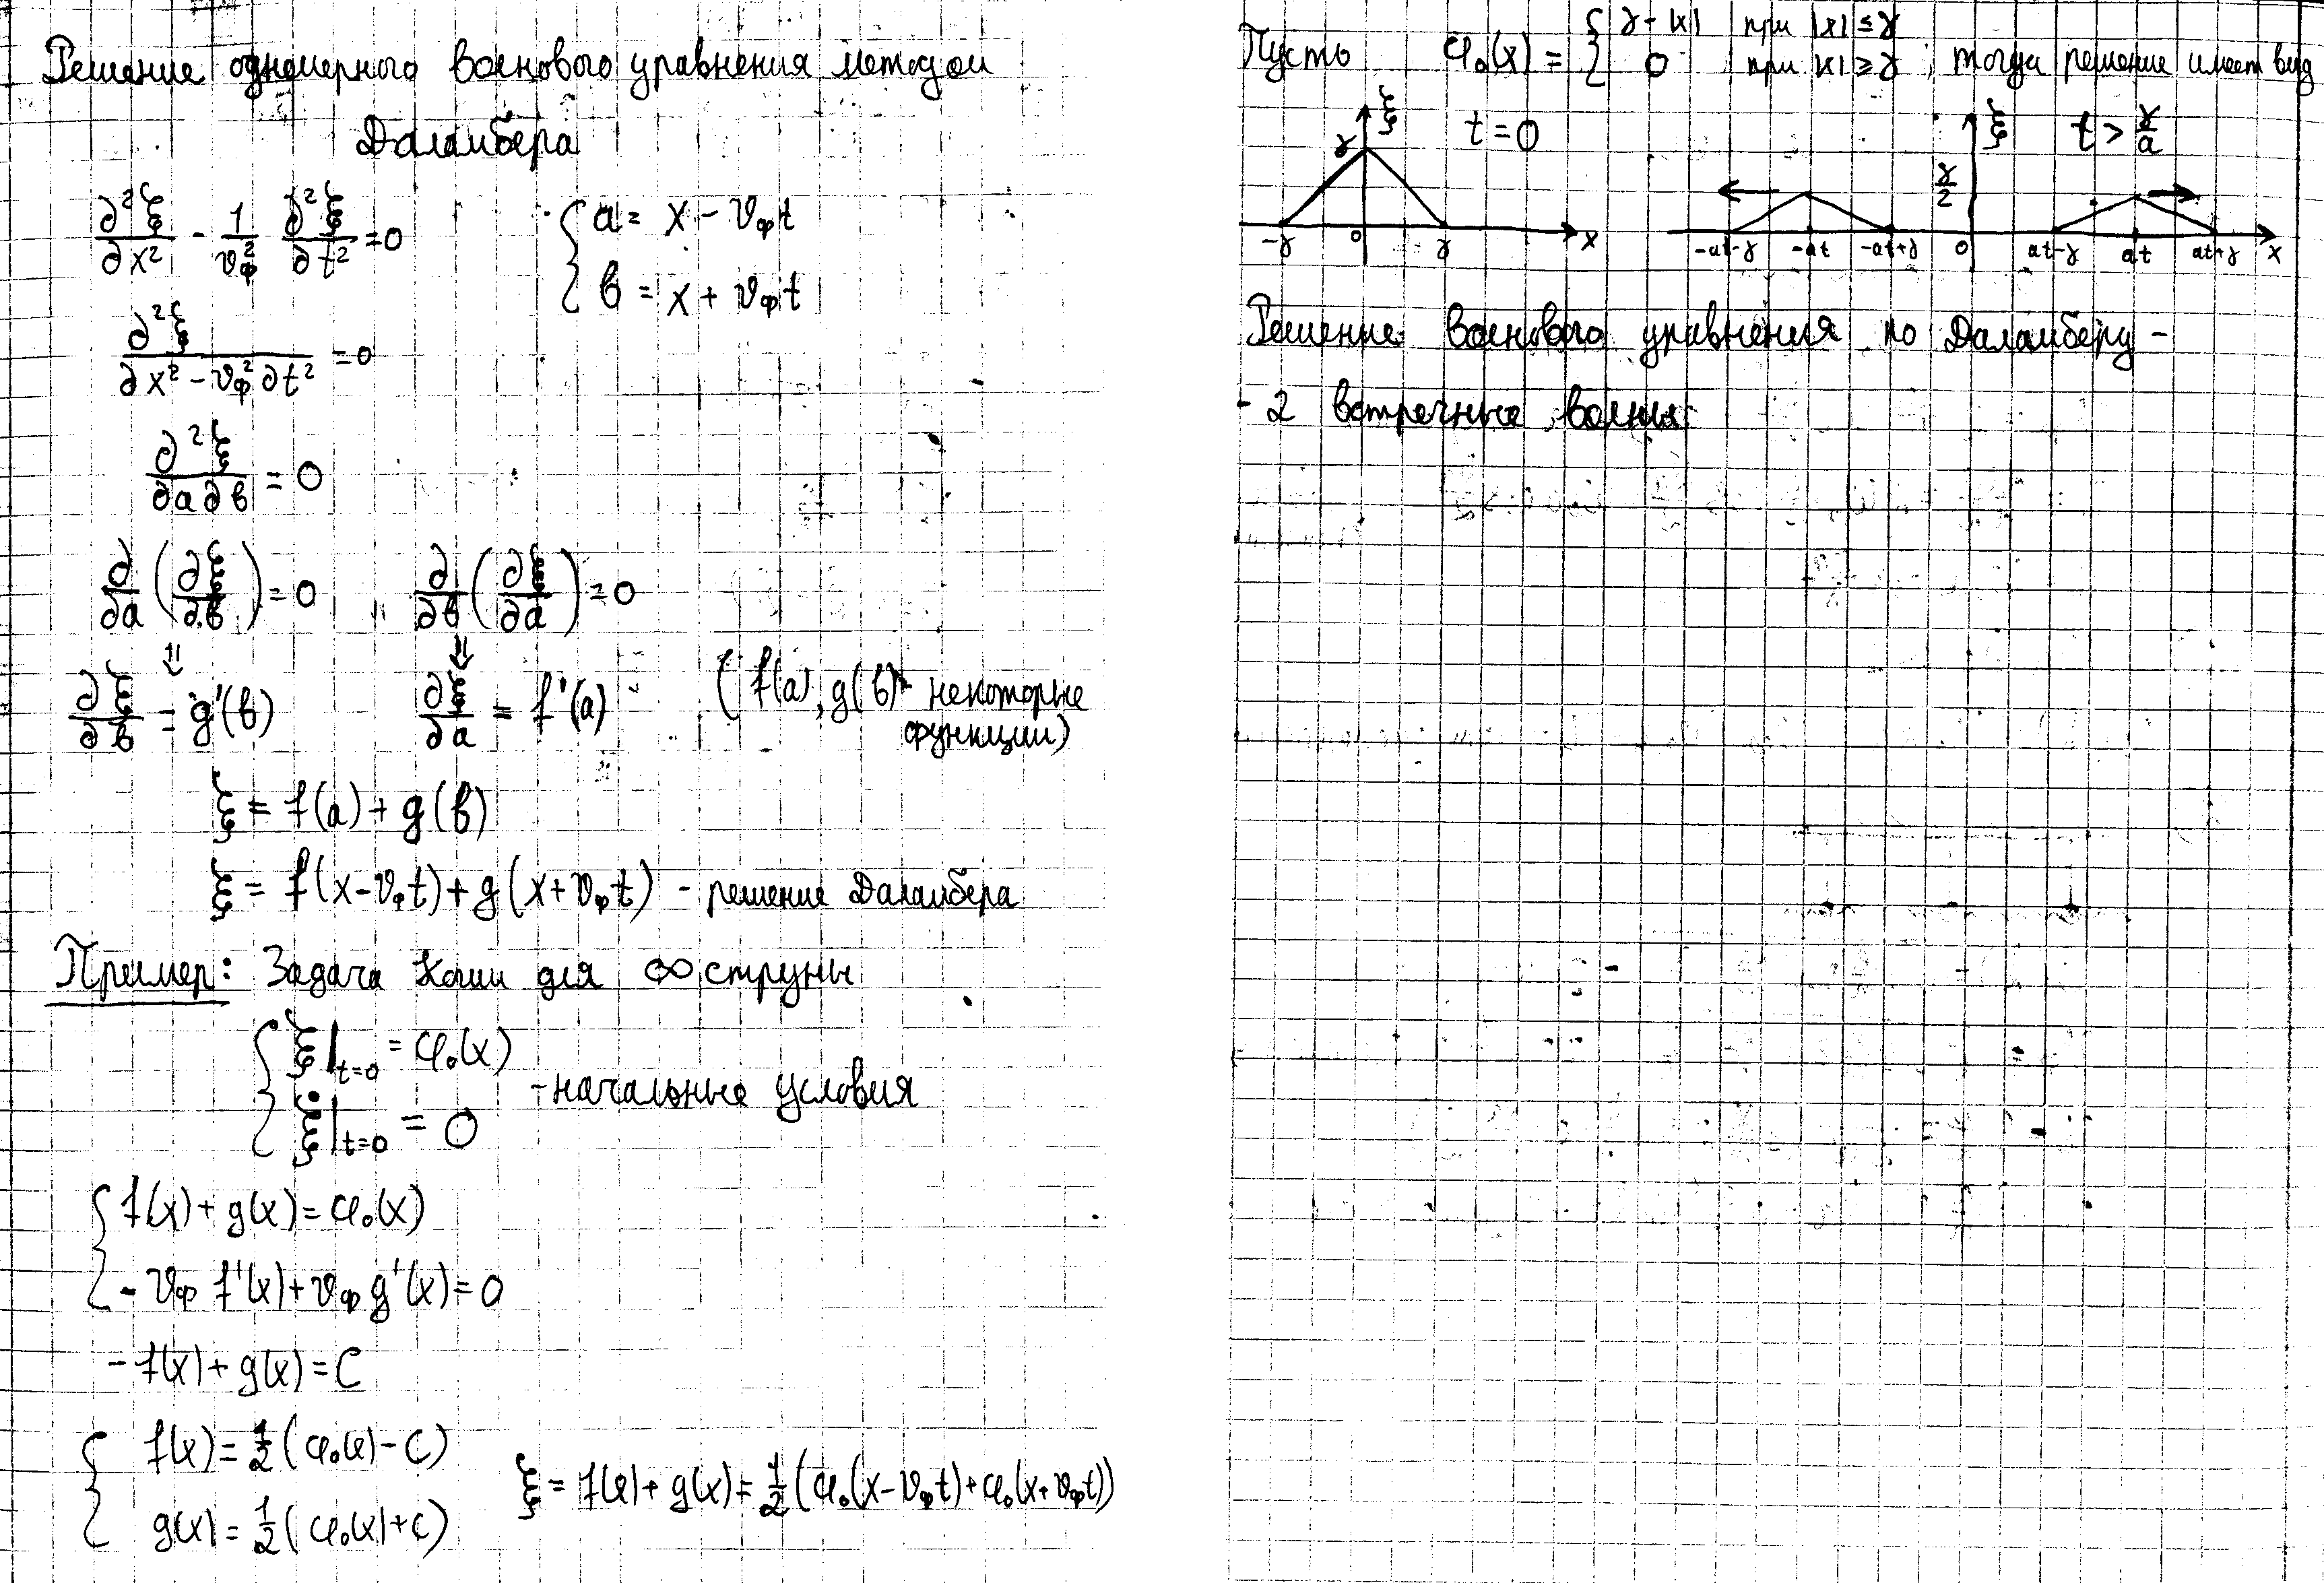 Решение одномерного волнового уравнения методом
Даламбера
∂²ξ/∂x² - 1/v_ф² ∂²ξ/∂t² = 0
{ a = x - v_ф t
b = x + v_ф t
∂²ξ/(∂x² - v_ф² ∂t²) = 0
∂²ξ/∂a∂b = 0
∂/∂a (∂ξ/∂b) = 0 ∂/∂b (∂ξ/∂a) = 0
⇓ ⇓
∂ξ/∂b = g'(b) ∂ξ/∂a = f'(a) (f(a), g(b) - некоторые
функции)
ξ = f(a) + g(b)
ξ = f(x-v_ф t) + g(x+v_ф t) - решение Даламбера
Пример: Задача Коши для ∞ струны
{ ξ|t=0 = φ₀(x)
ξ̇|t=0 = 0
- начальные условия
{ f(x) + g(x) = φ₀(x)
- v_ф f'(x) + v_ф g'(x) = 0
- f(x) + g(x) = C
{ f(x) = 1/2 (φ₀(x) - C)
g(x) = 1/2 (φ₀(x) + C)
ξ = f(x) + g(x) = 1/2 (φ₀(x-v_ф t) + φ₀(x+v_ф t))
Пусть φ₀(x) = { γ - |x| при |x| ≤ γ
0 при |x| ≥ γ ; тогда решение имеет вид
ξ t = 0
γ
-γ 0 γ x
ξ t > γ/a
γ/2
-at-γ -at -at+γ 0 at-γ at at+γ x
Решение волнового уравнения по Даламберу -
- 2 встречные волны